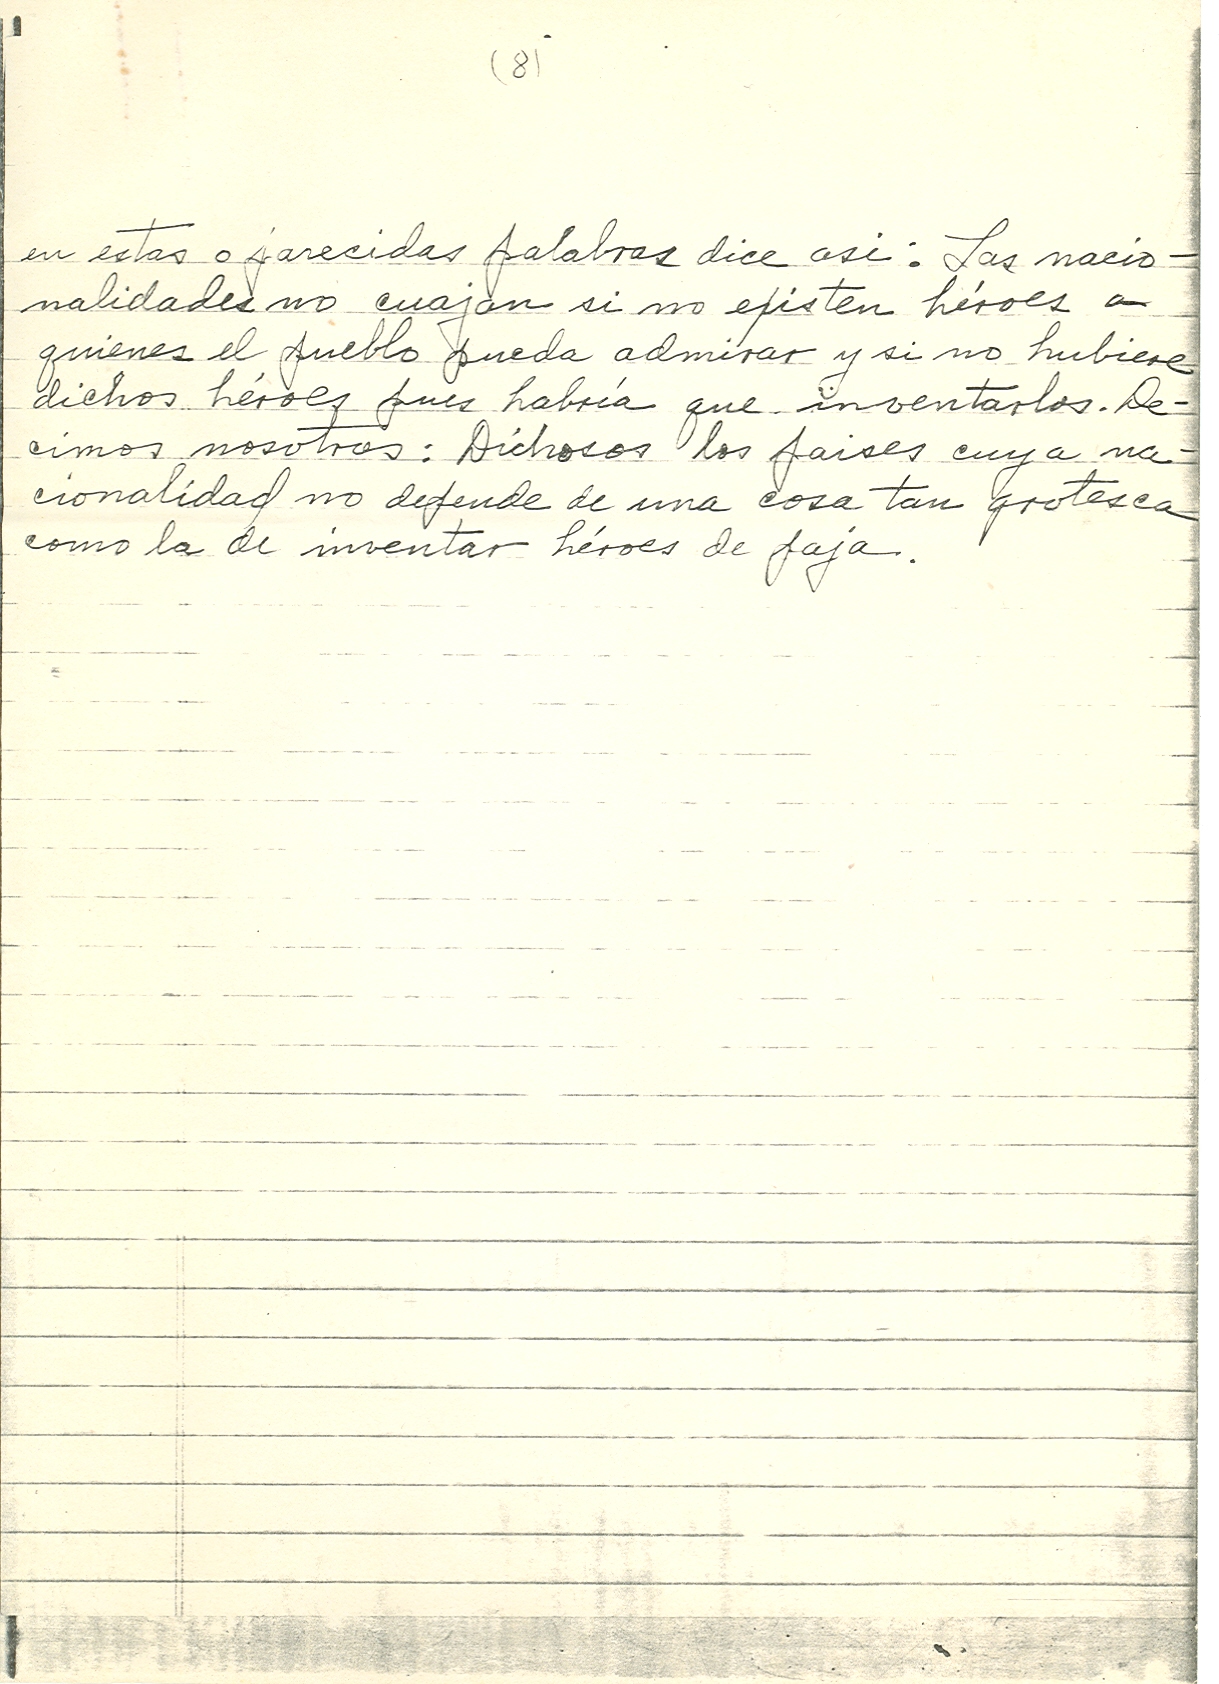 (8)
en estas o parecidas palabras dice asi: Las nacio-
nalidades no cuajan si no existen héroes a
quienes el pueblo pueda admirar y si no hubiere
dichos héroes pues habría que inventarlos. De-
cimos nosotros: Dichosos los paises cuya na-
cionalidad no depende de una cosa tan grotesca
como la de inventar héroes de paja.